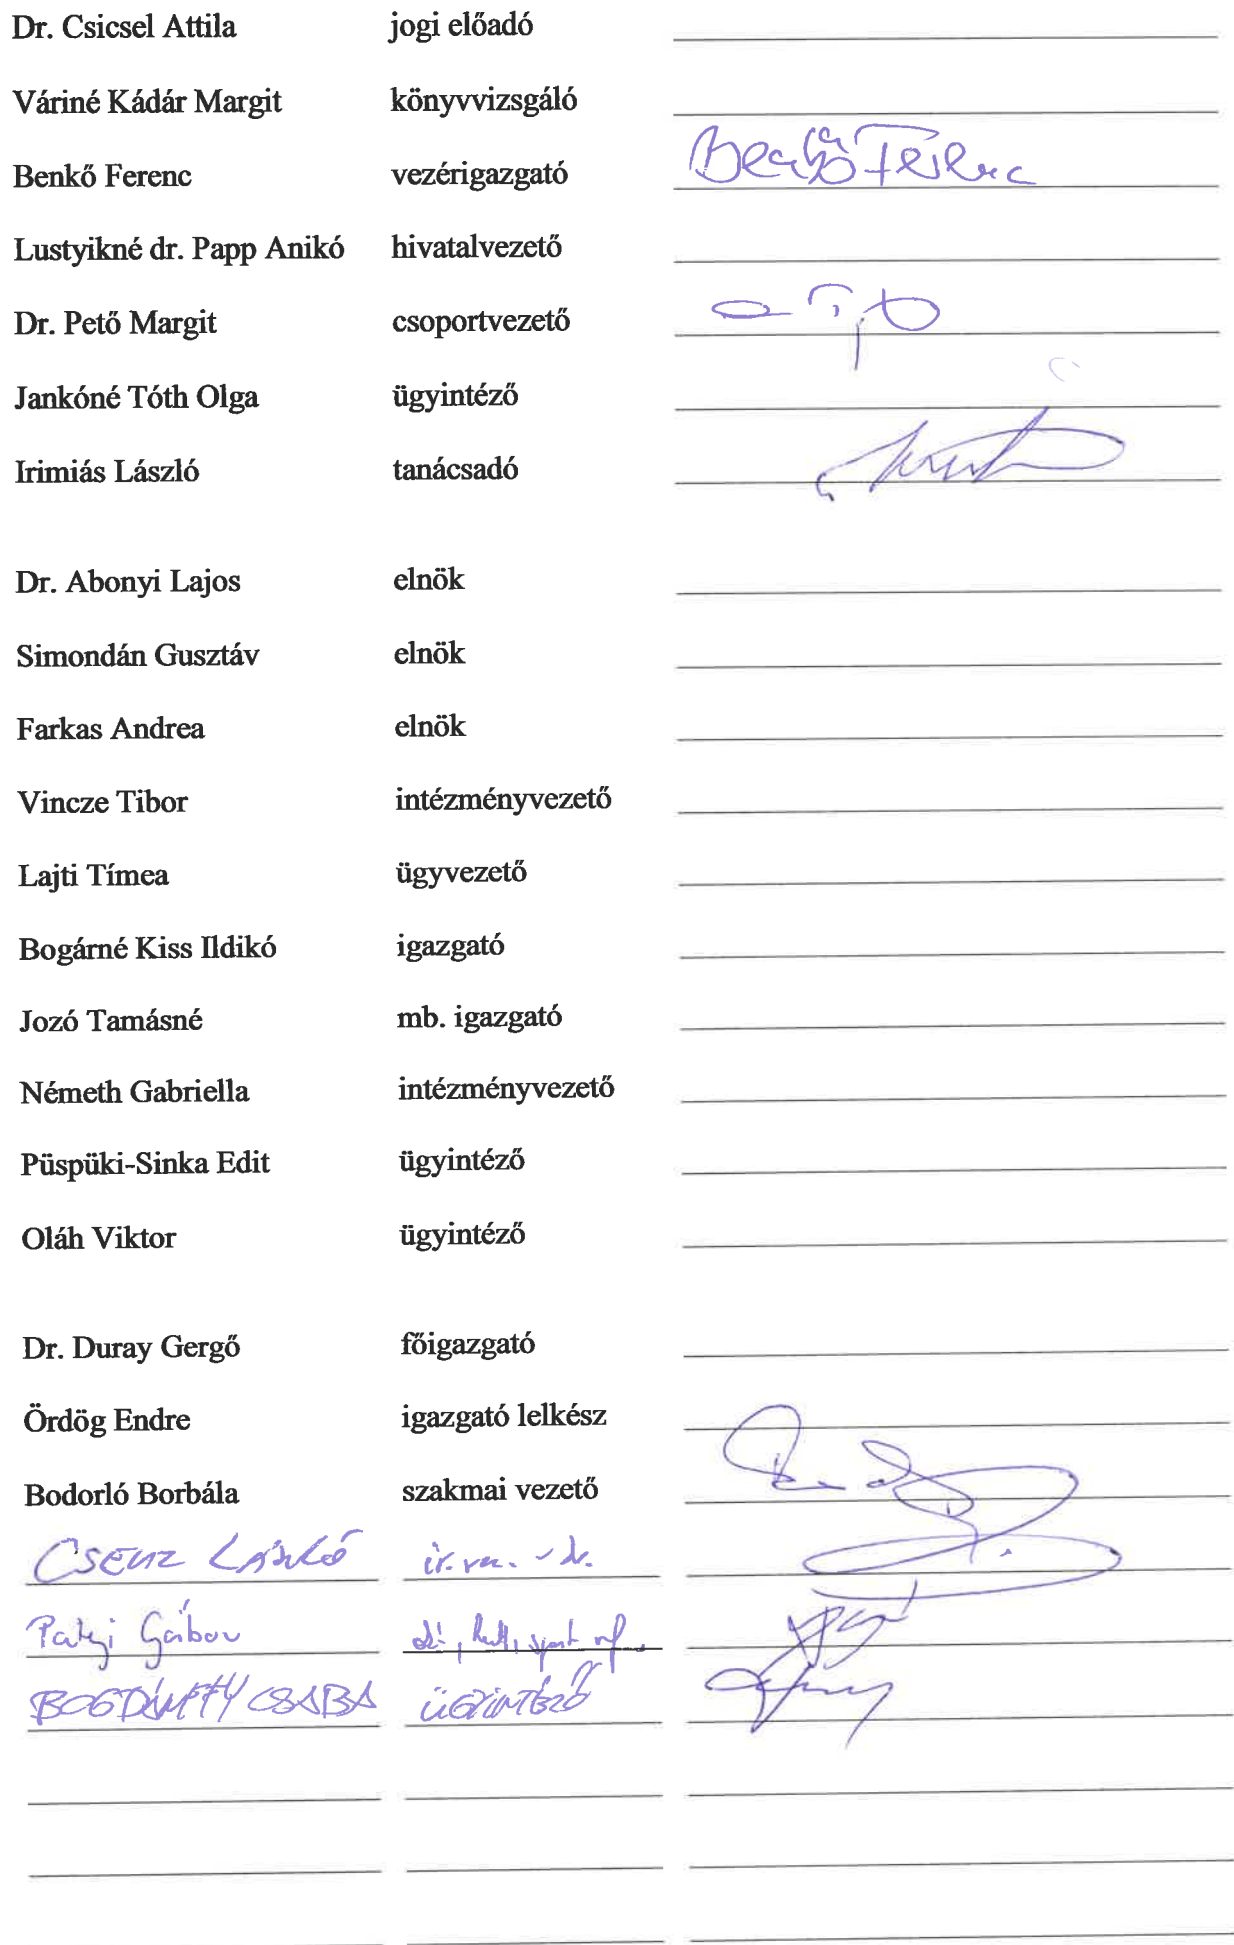 Dr. Csicsel Attila jogi előadó
Váriné Kádár Margit könyvvizsgáló
Benkő Ferenc vezérigazgató Benkő Ferenc
Lustyikné dr. Papp Anikó hivatalvezető
Dr. Pető Margit csoportvezető
Jankóné Tóth Olga ügyintéző
Irimiás László tanácsadó
Dr. Abonyi Lajos elnök
Simondán Gusztáv elnök
Farkas Andrea elnök
Vincze Tibor intézményvezető
Lajti Tímea ügyvezető
Bogárné Kiss Ildikó igazgató
Jozó Tamásné mb. igazgató
Németh Gabriella intézményvezető
Püspüki-Sinka Edit ügyintéző
Oláh Viktor ügyintéző
Dr. Duray Gergő főigazgató
Ördög Endre igazgató lelkész
Bodorló Borbála szakmai vezető
László
Gábor
CSABA ÜGYINTÉZŐ